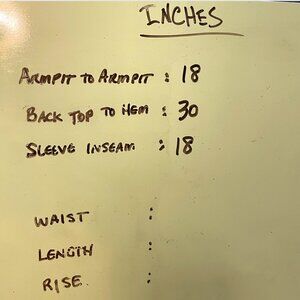 INCHES
ARMPIT TO ARMPIT : 18
BACK TOP TO HEM : 30
SLEEVE INSEAM : 18
WAIST :
LENGTH :
RISE :